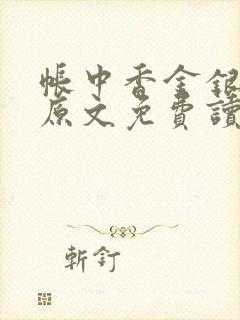 帳中香金銀
原文免費讀
斬釘